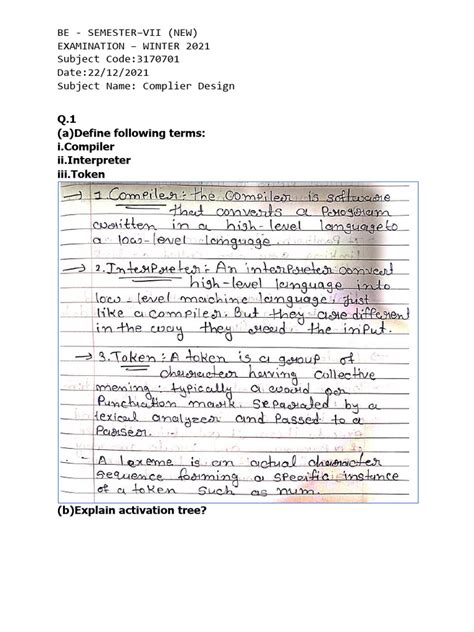 BE - SEMESTER–VII (NEW)
EXAMINATION – WINTER 2021
Subject Code:3170701
Date:22/12/2021
Subject Name: Complier Design
Q.1
(a)Define following terms:
i.Compiler
ii.Interpreter
iii.Token
→ 1. Compiler : the compiler is software
that converts a Program
written in a high-level language to
a low-level language.
→ 2. Interpreter : An interpreter convert
high-level language into
low-level machine language, just
like a compiler. But they are different
in the way they read the input.
→ 3. Token : A token is a group of
character having collective
mening : typically a word or
Punchiation mark, separated by a
lexical analyzer and Passed to a
Parser.
- A lexeme is an actual character
sequence forming a specific instance
of a token such as num.
(b)Explain activation tree?